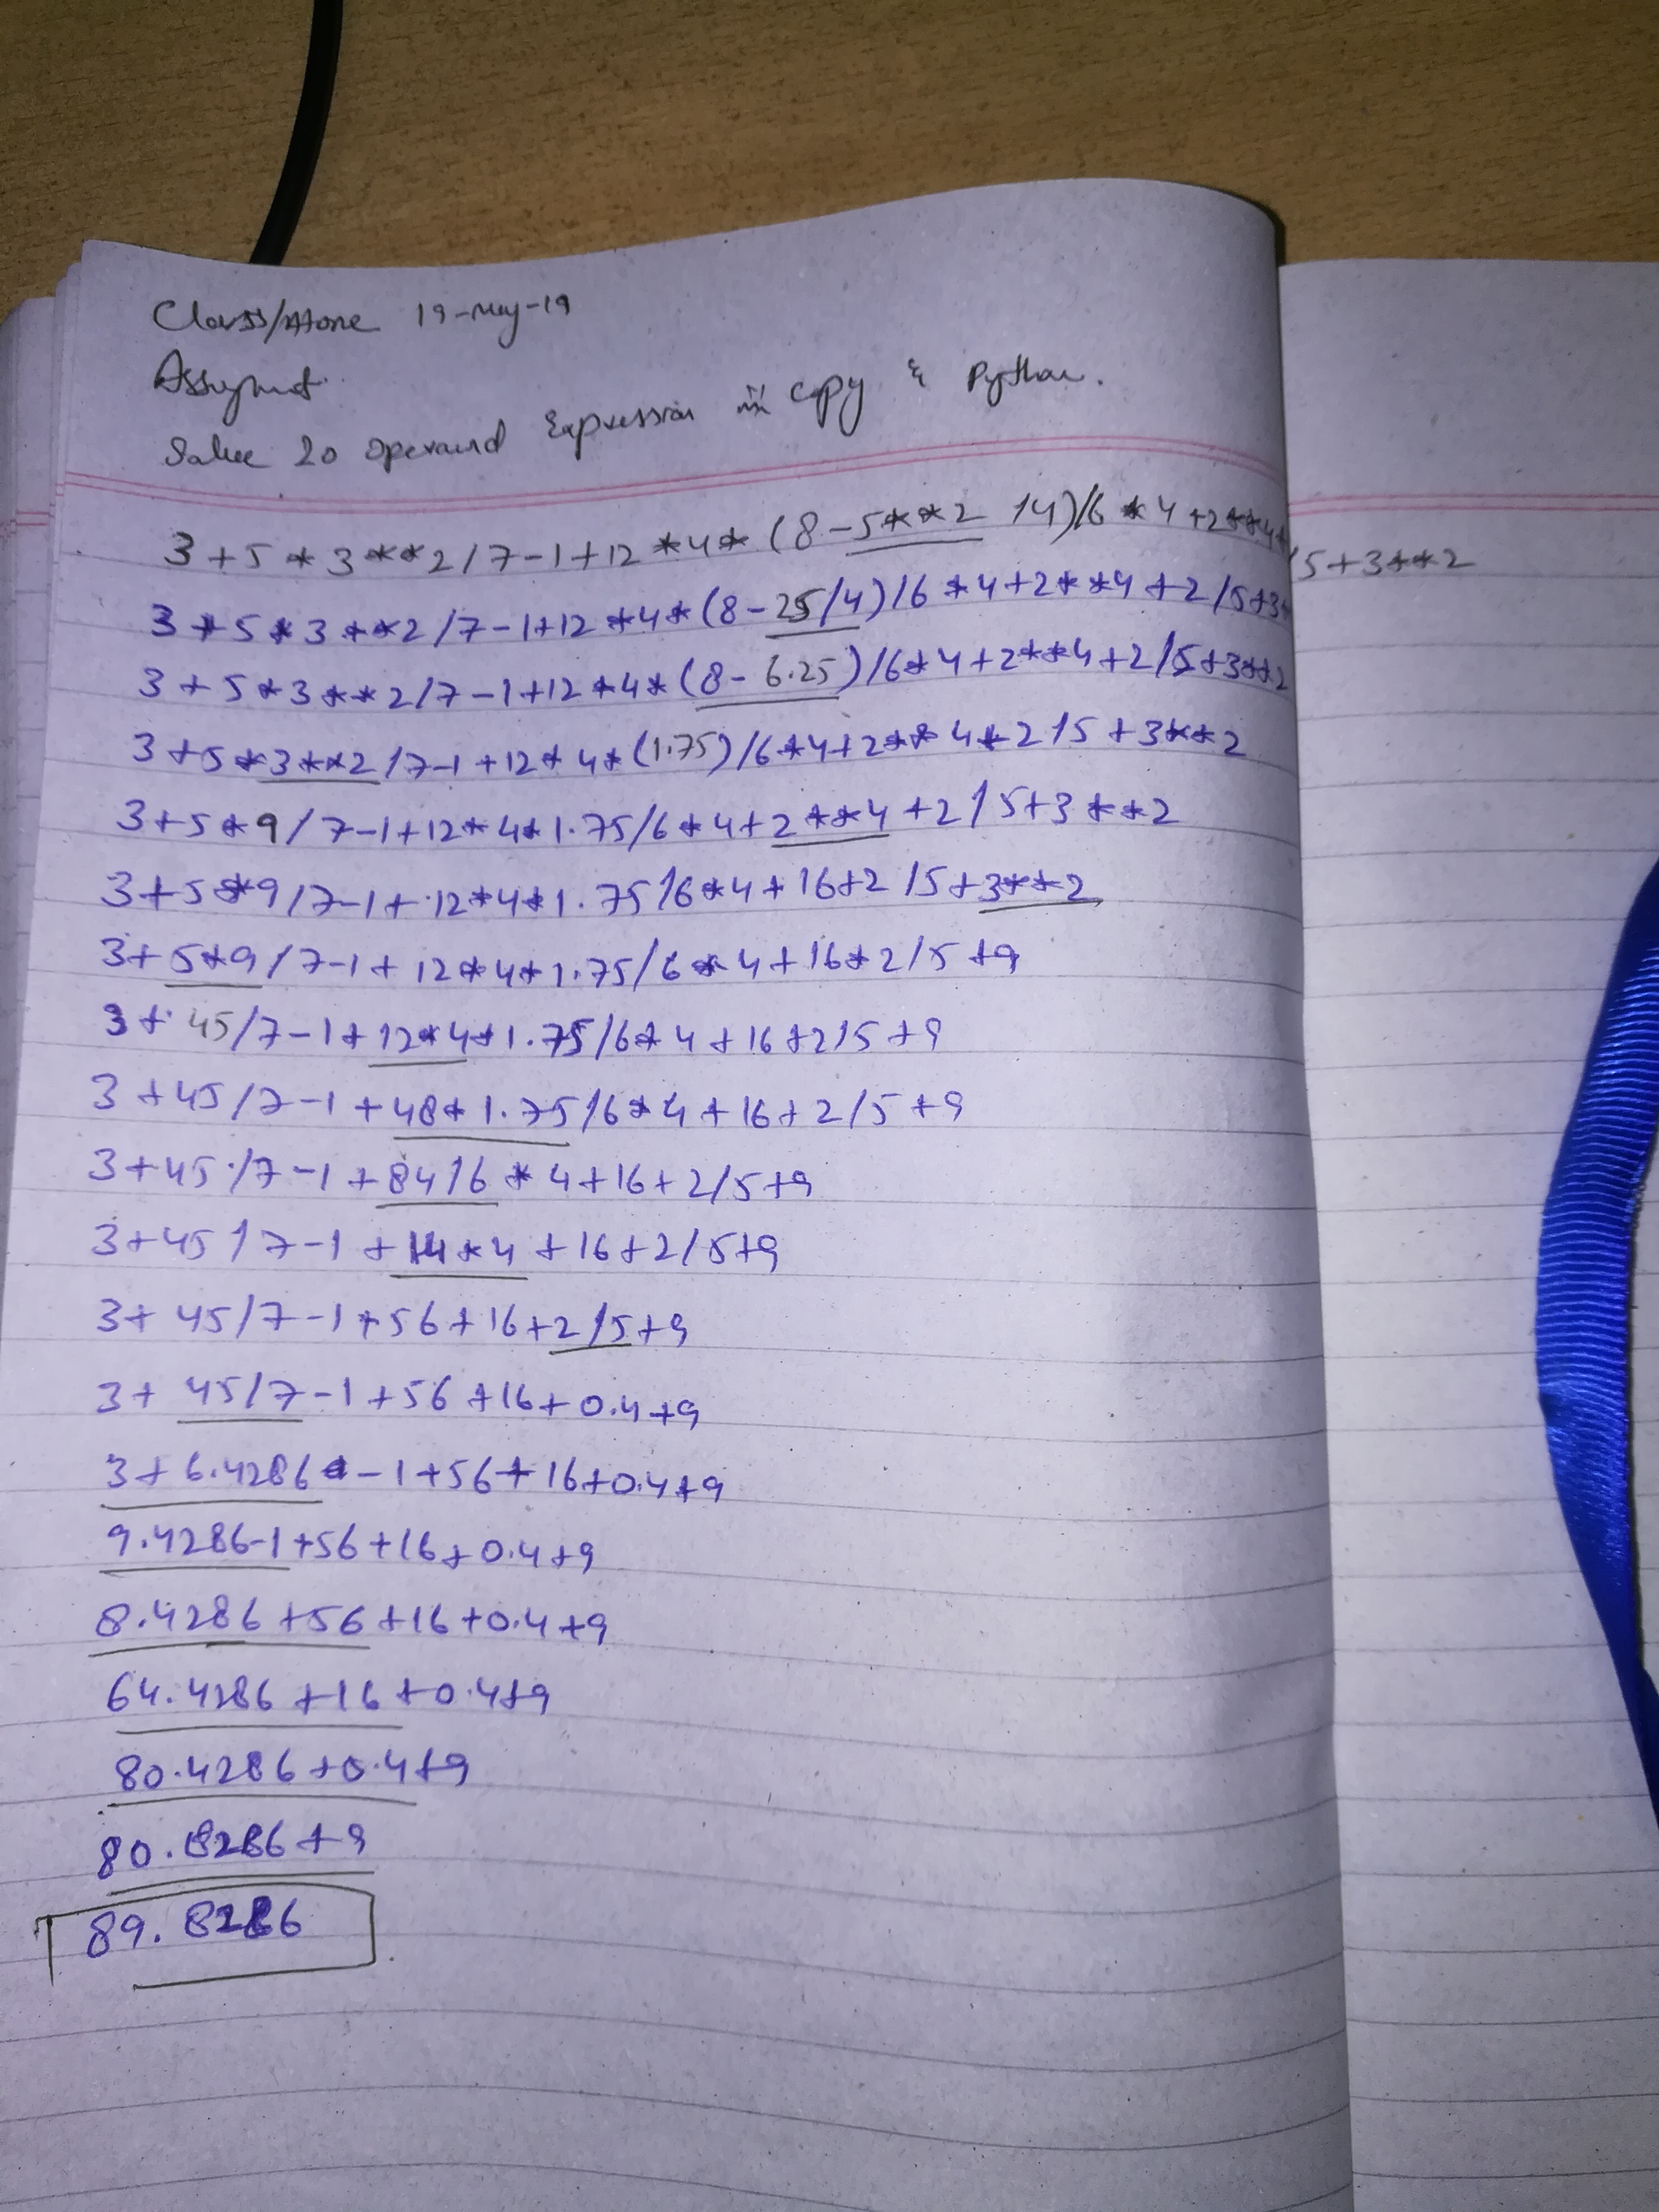 Class/ 19-May-19
Assignmt.
Solve 20 operand Expression in copy & Python.
3+5*3**2/7-1+12*4*(8-5**2/4)/6*4+2**4+ /5+3**2
3+5*3**2/7-1+12*4*(8-25/4)/6*4+2**4+2/5+3*
3+5*3**2/7-1+12*4*(8-6.25)/6*4+2**4+2/5+3**2
3+5*3**2/7-1+12*4*(1.75)/6*4+2**4+2/5+3**2
3+5*9/7-1+12*4*1.75/6*4+2**4+2/5+3**2
3+5*9/7-1+12*4*1.75/6*4+16+2/5+3**2
3+5*9/7-1+12*4*1.75/6*4+16+2/5+9
3+45/7-1+12*4*1.75/6*4+16+2/5+9
3+45/7-1+48*1.75/6*4+16+2/5+9
3+45/7-1+84/6*4+16+2/5+9
3+45/7-1+14*4+16+2/5+9
3+45/7-1+56+16+2/5+9
3+45/7-1+56+16+0.4+9
3+6.4286-1+56+16+0.4+9
9.4286-1+56+16+0.4+9
8.4286+56+16+0.4+9
64.4286+16+0.4+9
80.4286+0.4+9
80.8286+9
89.8286